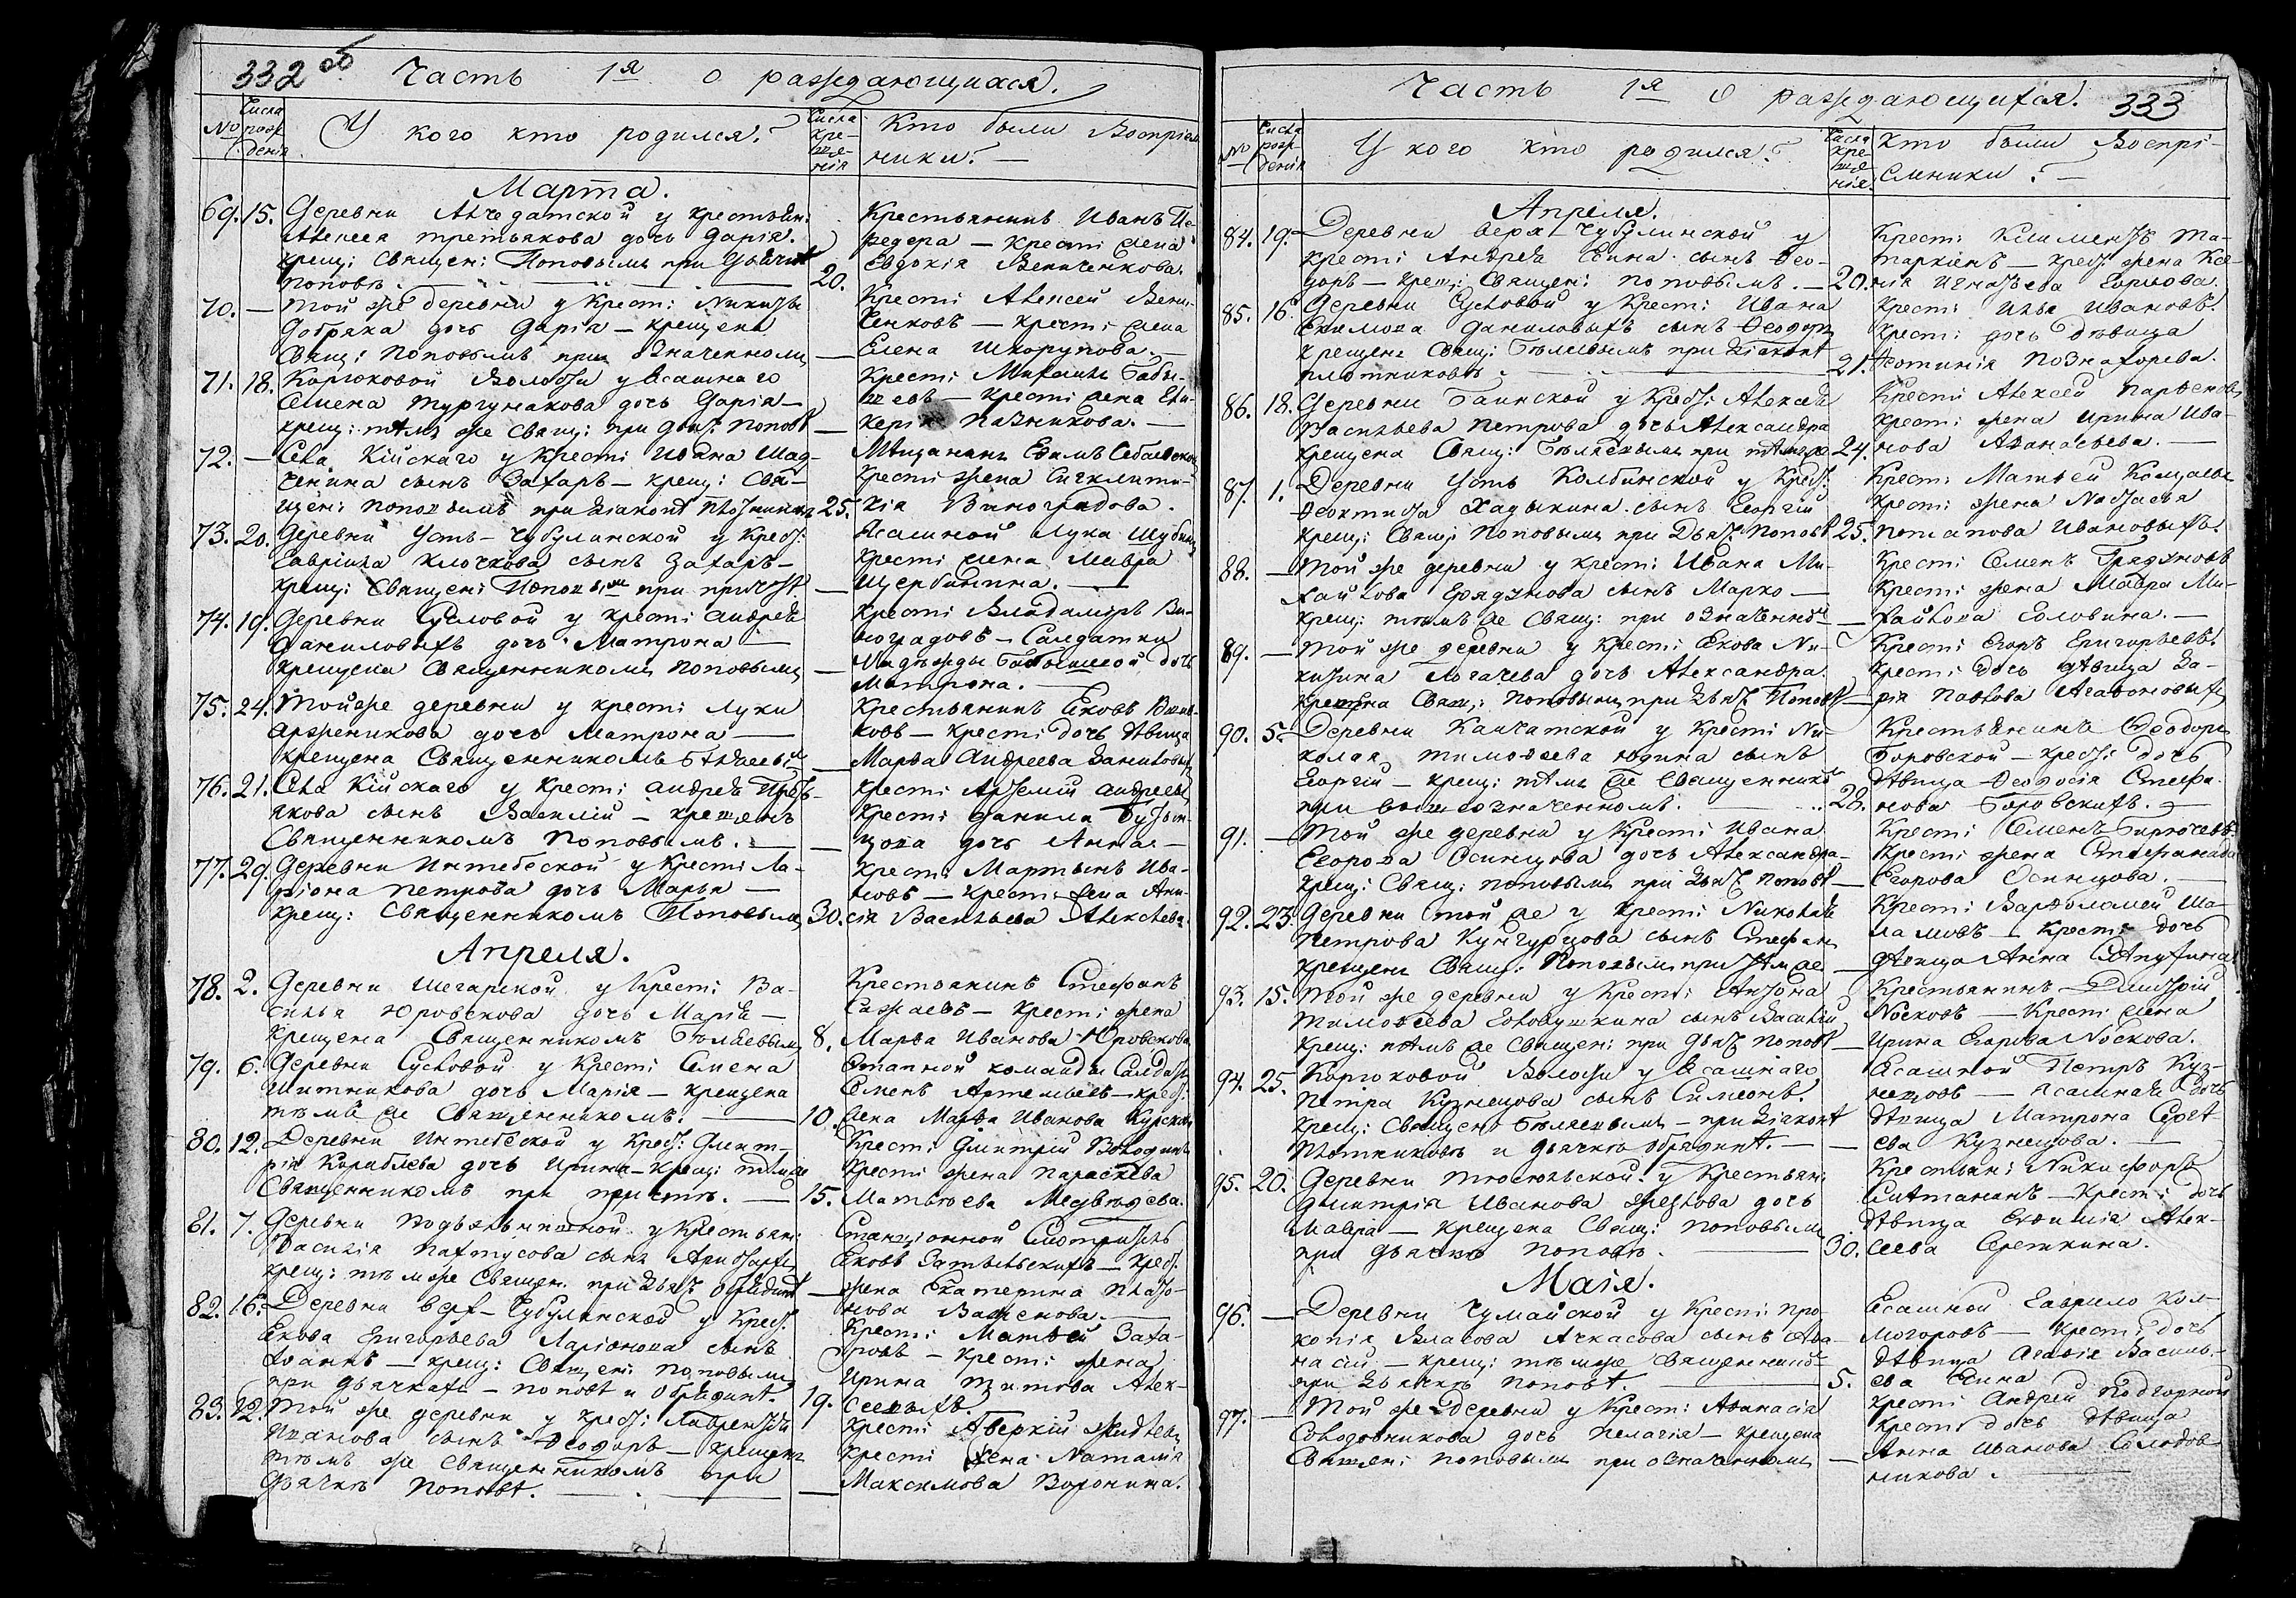 332 об
Часть 1я о раждающихся.
№
Числа рождения
У кого кто родился?
Числа крещения
Кто были Воспріем-
ники? —
Марта.
69. 15. Деревни Алчедатской у крестьян:
Алексея Третьякова дочь Дарія.
крещ: Священ: Поповымъ при
Поповѣ. 20.
Крестьянинъ Иванъ
— Крест: жена
Евдокія Величенкова.
70. — Той же деревни у Крест: Никиты
Добряка дочь Дарія — крещена
Свящ: Поповымъ при означенномъ —
Крест: Алексей Вели-
ченковъ — крест: жена
Елена Шкорупова. —
71. 18. Корюковой Волости у Ясашнаго
Семена Тургунакова дочь Дарія —
крещ: тѣмъ же Свящ: при Дьяч: Поповѣ —
Крест: Михаилъ
— крест: жена
Павникова. —
72. — Села Кійскаго у Крест: Ивана Шад-
чинина сынъ Захаръ — крещ: Свя-
щен: Поповымъ при Діаконѣ Плотников 25.
Мѣщанинъ Ефимъ
Крест: жена
Виноградова.
73. 20. Деревни Усть-Чубулинской у Крест:
Гавріила Клочкова сынъ Захаръ —
крещ: Священ: Поповымъ при причетѣ —
Ясашной Лука
Крест: жена Мавра
Щербинина. —
74. 19. Деревни Сусловой у Крест: Андрея
Даниловыхъ дочь Матрона —
крещена Священникомъ Поповымъ —
Крест: Владимиръ Ви-
ноградовъ — Солдатки
Надѣжды дочь
Матрона. —
75. 24. Той же деревни у крест: Луки
Арженикова дочь Матрона —
крещена Священникомъ Бѣляевым —
Крестьянинъ Яковъ
ковъ — крест: дочь дѣвица
Марѳа Андреева Даниловых
76. 21. Села Кійскаго у Крест: Андрея
якова сынъ Василій — крещенъ
Священникомъ Поповымъ. —
Крест: Артемій Андреевъ
Крест: Данила
цова дочь Анна —
77. 29. Деревни Интебеской у Крест: Ла-
ріона Петрова дочь Марья —
крещ: Священникомъ Поповымъ 30.
Крест: Мартынъ Ива-
новъ — крест: жена Ани-
сія Васильева Алексѣева
Апреля.
78. 2. Деревни Шегарской у Крест: Ва-
силья Юровскова дочь Марія —
крещена Священникомъ Бѣляевымъ 8.
Крестьянинъ Стефанъ
Сажаевъ — Крест: жена
Марѳа Иванова Юровскова
79. 6. Деревни Сусловой у Крест: Семена
Шитникова дочь Марія — крещена
тѣмъ же Священникомъ. — 10.
Этапной команды Салдатъ
Семенъ Артемьевъ — крест:
жена Марѳа Иванова
80. 12. Деревни Интебеской у Крест: Димит-
рія Кораблева дочь Ирина — крещ: тѣмъ же
Священникомъ при причтѣ. — 15.
Крест: Димитрій Володинъ
Крест: жена Параскева
Матвѣева Медвѣдева.
81. 7. Деревни Подъельнишной у Крестьян:
Василія Пахтусова сынъ
крещ: тѣмъ же Священ. при Дьяч: —
Станціонной Смотритель
Яковъ — Крест:
жена Екатерина Плато-
нова Важенова. —
82. 16. Деревни верх-Чубулинской у Крест:
Якова Григорьева Ларіонова сынъ
Іоаннъ — крещ: Священ: Поповымъ
при дьячкахъ — Поповѣ и 19.
Крест: Матвѣй Заха-
ровъ — Крест: жена
Ирина Титова Алек-
сеевыхъ.
83. 12. Той же деревни у крест: Лаврентья
Иванова сынъ Ѳеодоръ — крещенъ
тѣмъ же Священникомъ при
дьячкѣ Поповѣ. —
Крест: Аверкій
Крест: жена Наталія
Максимова Воронина.
Часть 1я о раждающихся. 333
№
Числа рождения
У кого кто родился?
Числа крещения
Кто были Воспрі-
емники? —
Апреля.
84. 19. Деревни верх-Чубулинской у
Крест: Андрея сынъ Ѳео-
доръ — крещ: Священ: Поповымъ. — 20.
Крест: Климентъ
— крест: жена Ксе-
нія Игнатьева
85. 16. Деревни Сусловой у Крест: Ивана
Екимова Даниловыхъ сынъ Ѳеодоръ
крещенъ Свящ: Бѣляевымъ при Діаконѣ
Плотниковѣ. 21.
Крест: Илья Ивановъ.
Крест: дочь дѣвица
Ѳотинія
86. 18. Деревни у Крест: Алексея
Васильева Петрова дочь Александра
крещена Свящ: Бѣляевымъ при 24.
Крест: Алексей Парѳеновъ
Крест: жена Ирина Ива-
нова Аѳанасьева. —
87. 1. Деревни Усть Колбинской у Крест:
Ѳеоктиста Хадыкина сынъ Георгій
крещ: Свящ: Поповымъ при Дьяч: Поповѣ 25.
Крест: Матвей
Крест: жена
Потапова Ивановыхъ.
88. — Той же деревни у крест: Ивана Ми-
хайлова сынъ Марко —
крещ: тѣмъ же Свящ: при означенном —
Крест: Семенъ
Крест: жена Мавра Ми-
хайлова Еловина. —
89. — Той же деревни у Крест: Якова Ни-
китина Логачева дочь Александра.
крещена Свящ: Поповымъ при Дьяч: Поповѣ —
Крест: Егоръ Григорьевъ.
Крест: дочь дѣвица Да-
рія Павлова Агафоновых
90. 5. Деревни Камчатской у Крест: Ни-
колая Тимоѳеева Юдина сынъ
Георгій — крещ: тѣмъ же Священником
при вышеозначенномъ. — 28.
Крестьянинъ Ѳеодоръ
Боровской — крест: дочь
дѣвица Ѳеодосія Стефа-
нова Боровскихъ. —
91. — Той же деревни у Крест: Ивана
Егорова Осинцова дочь Александра —
крещ: Свящ: Поповымъ при Дьяч: Поповѣ —
Крест: Семенъ Бирючевъ
Крест: жена Стефанида
Егорова Осинцова. —
92. 23. Деревни той же у Крест: Николая
Петрова Кунгурцова сынъ Стефанъ
крещенъ Свящ: Поповымъ при тѣмъ же —
Крест: Варѳоломей Ша-
ламовъ — Крест: дочь
дѣвица Анна
93. 15. Той же деревни у Крест: Антона
Тимоѳеева сынъ Василій
крещ: тѣмъ же Священ: при Дьяч: Поповѣ —
Крестьянинъ Димитрій
Носковъ — Крест: жена
Ирина Егорова Носкова.
94. 25. Корюковой Волости у Ясашнаго
Петра Кузнецова сынъ Симеонъ.
крещ: Священ: Бѣляевымъ — при Діаконѣ
Плотниковѣ и дьячкѣ —
Ясашной Петръ Куз-
нецовъ — Ясашная дочь
дѣвица Матрона Серге-
ева Кузнецова. —
95. 20. Деревни Тюсюльской у Крестьян:
Димитрія Иванова дочь
Мавра — крещена Свящ: Поповымъ
при дьячкѣ Поповѣ. — 30.
Крестьян: Никифоръ
— Крест: дочь
дѣвица Евѳимія Алек-
сеева
Маія.
96. — Деревни Чумайской у Крест: Про-
копія Власова Ачкасова сынъ Аѳа-
насій — крещ: тѣмъ же Священником
при Дьячкѣ Поповѣ. — 5.
Ясашной Гаврило Кол-
могоровъ — Крест: дочь
дѣвица Агафія Василь-
ева
97. — Той же деревни у Крест: Аѳанасія
Солодовникова дочь Пелагія — крещена
Священ: Поповымъ при означенномъ —
Крест: Андрей Подгорной
Крест: дочь дѣвица
Анна Иванова Солодов-
никова. —